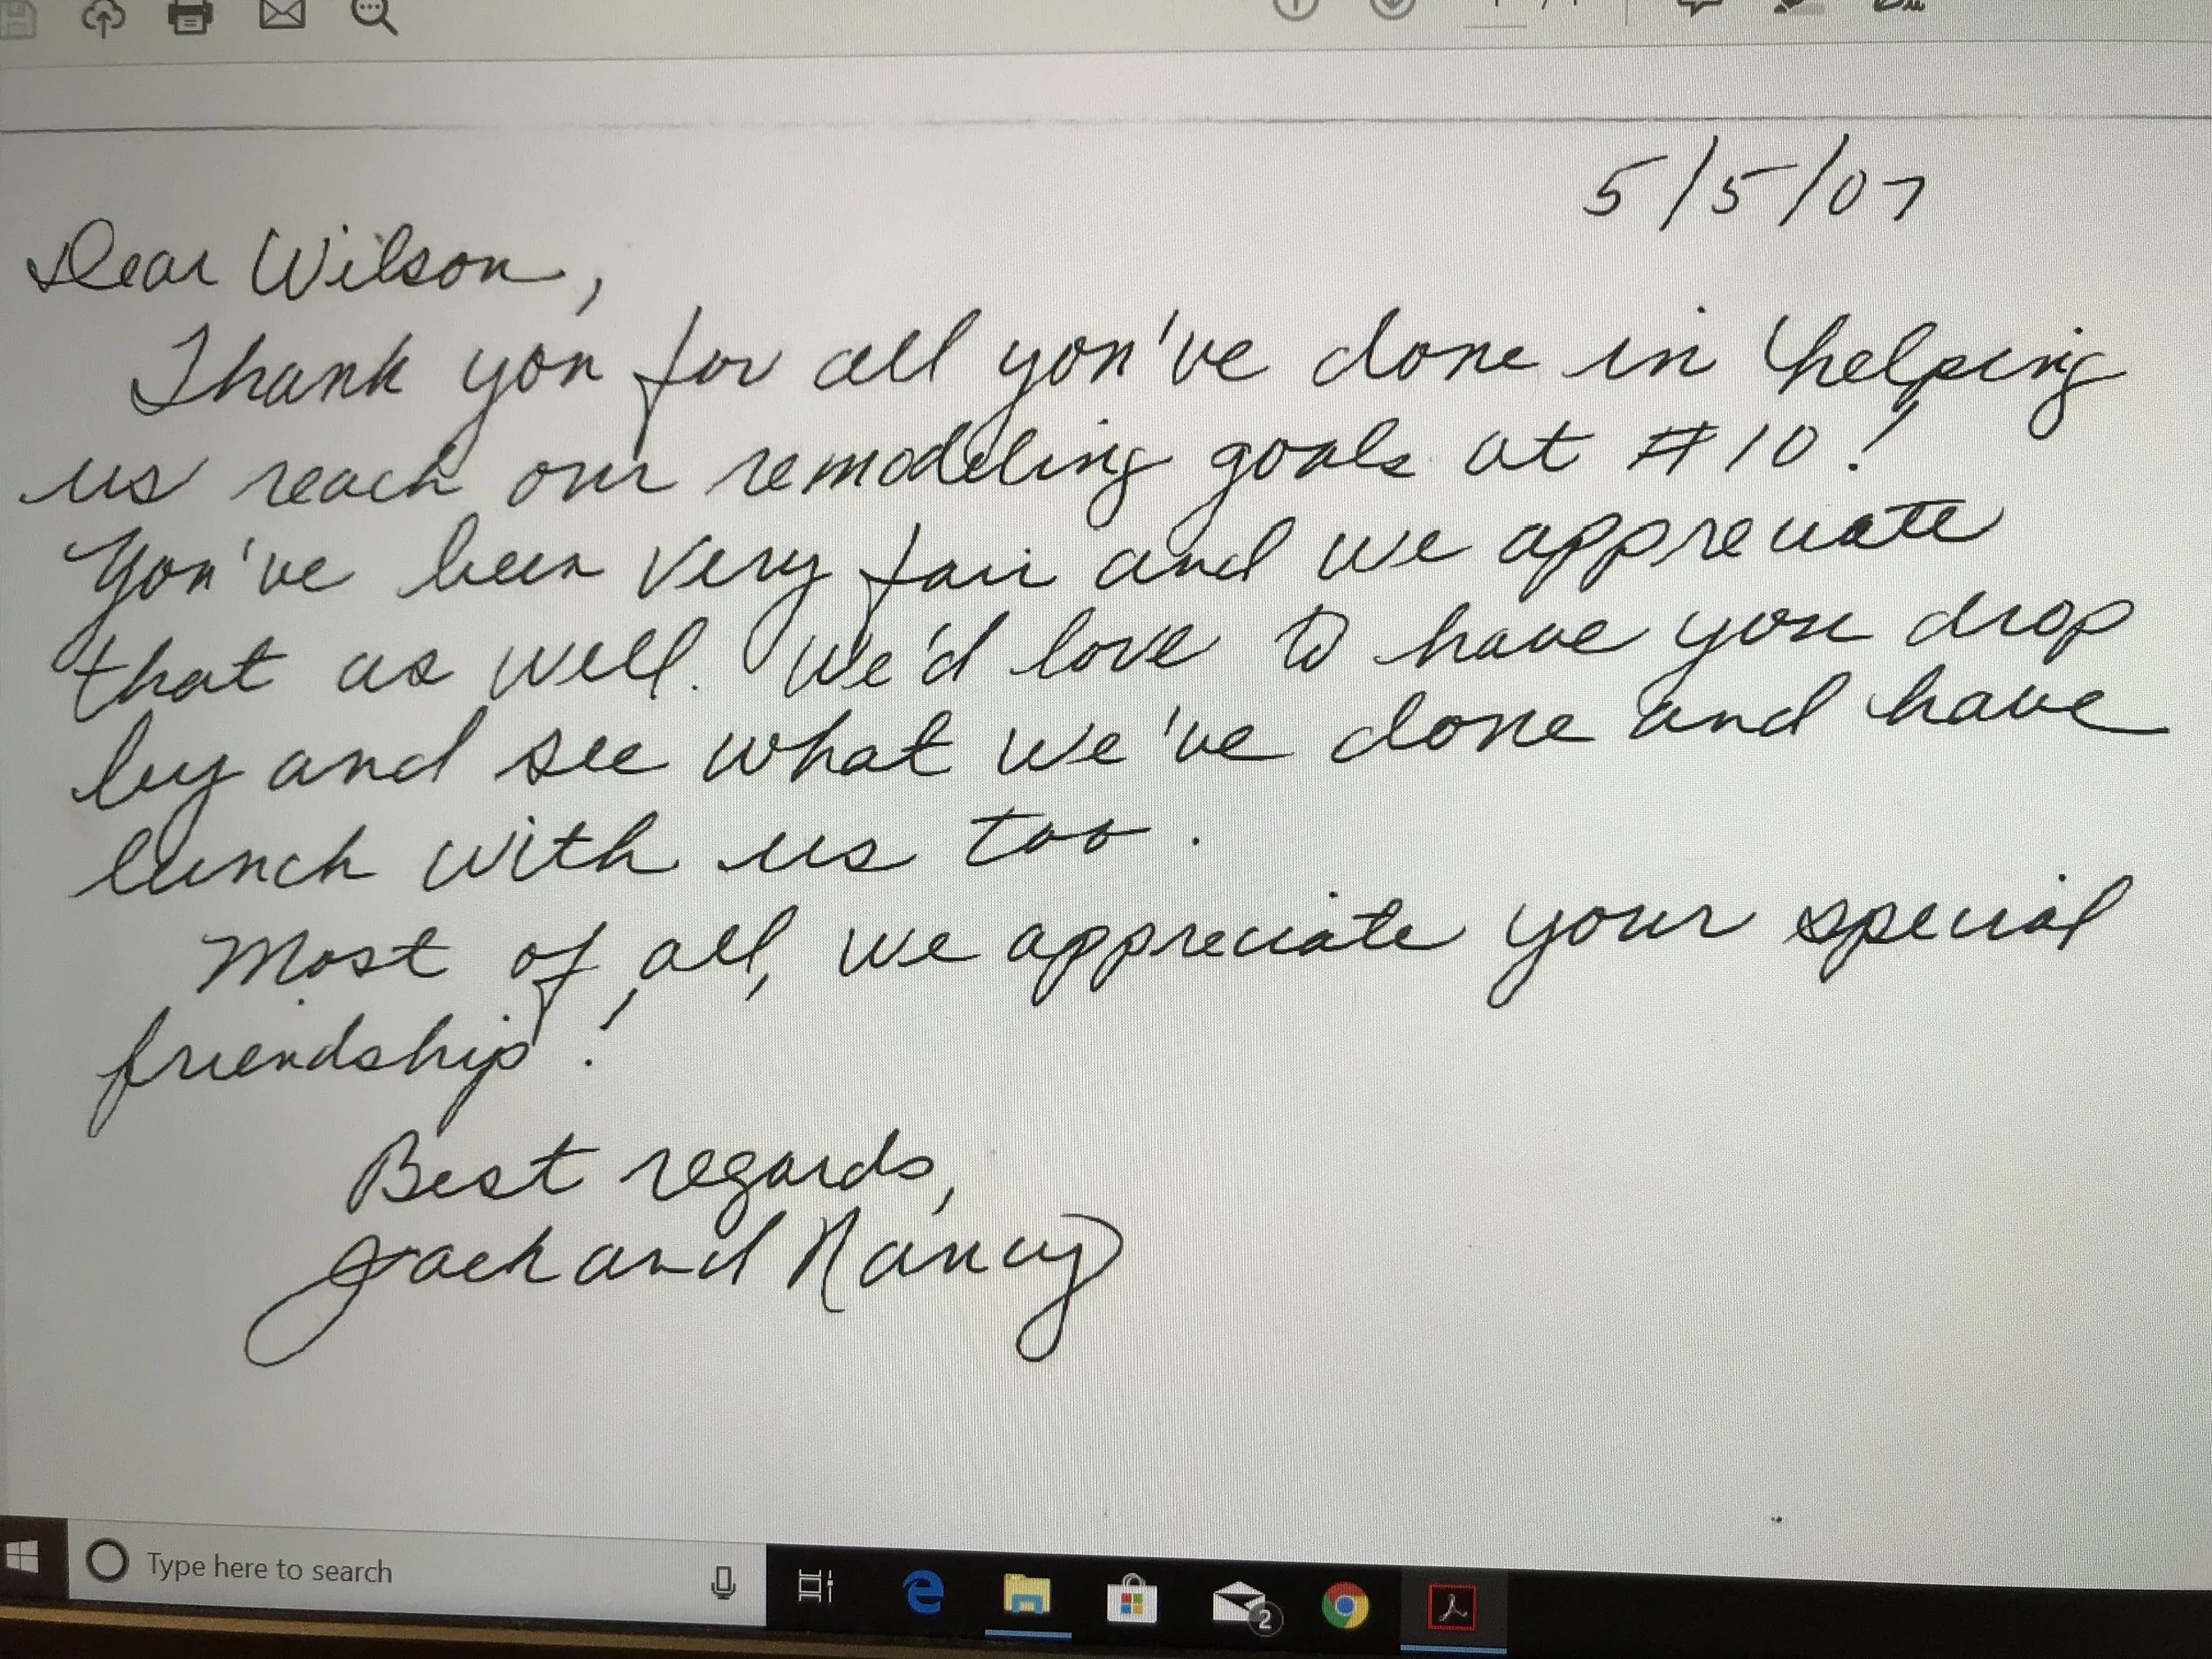 5/5/07
Dear Wilson,
Thank you for all you've done in helping
us reach our remodeling goals at #10!
You've been very fair and we appreciate
that as well. We'd love to have you drop
by and see what we've done and have
lunch with us too.
Most of all, we appreciate your special
friendship!
Best regards,
Jack and Nancy
Type here to search
2